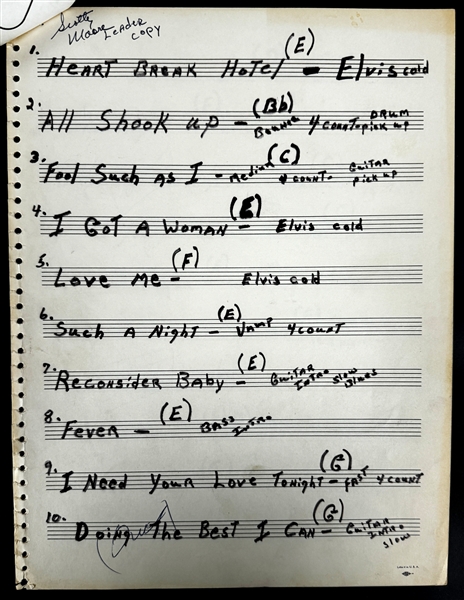 Scotty
Moore LEADER
COPY
1. HEART BREAK HOTEl (E) - Elvis cold
2. All Shook up - (Bb) Bounce 4 count - DRUM pick up
3. Fool Such As I - Medium (C) 4 count - Guitar pick up
4. I GoT A WOMAN - (E) Elvis cold
5. LOVE ME - (F) Elvis cold
6. Such A Night - (E) Vamp 4 count
7. RECONSIDER BABY - (E) Guitar INTRO Slow Blues
8. FEVER - (E) BASS INTRO
9. I NEED YOUR LOVE TONIGHT - (G) FAST 4 COUNT
10. Doing The BEST I CAN - (G) GuiTAR INTRO Slow